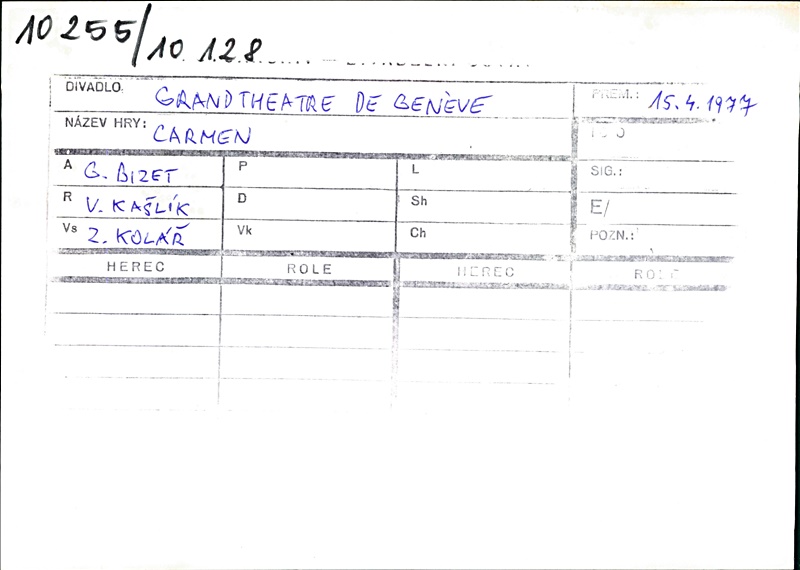 10 255/10 128
DIVADLO: GRANDTHEATRE DE GENÈVE PREM.: 15.4.1977
NÁZEV HRY: CARMEN
A G. BIZET P L SIG.:
R V. KAŠLÍK D Sh E/
Vs Z. KOLÁŘ Vk Ch POZN.:
HEREC ROLE HEREC ROLE